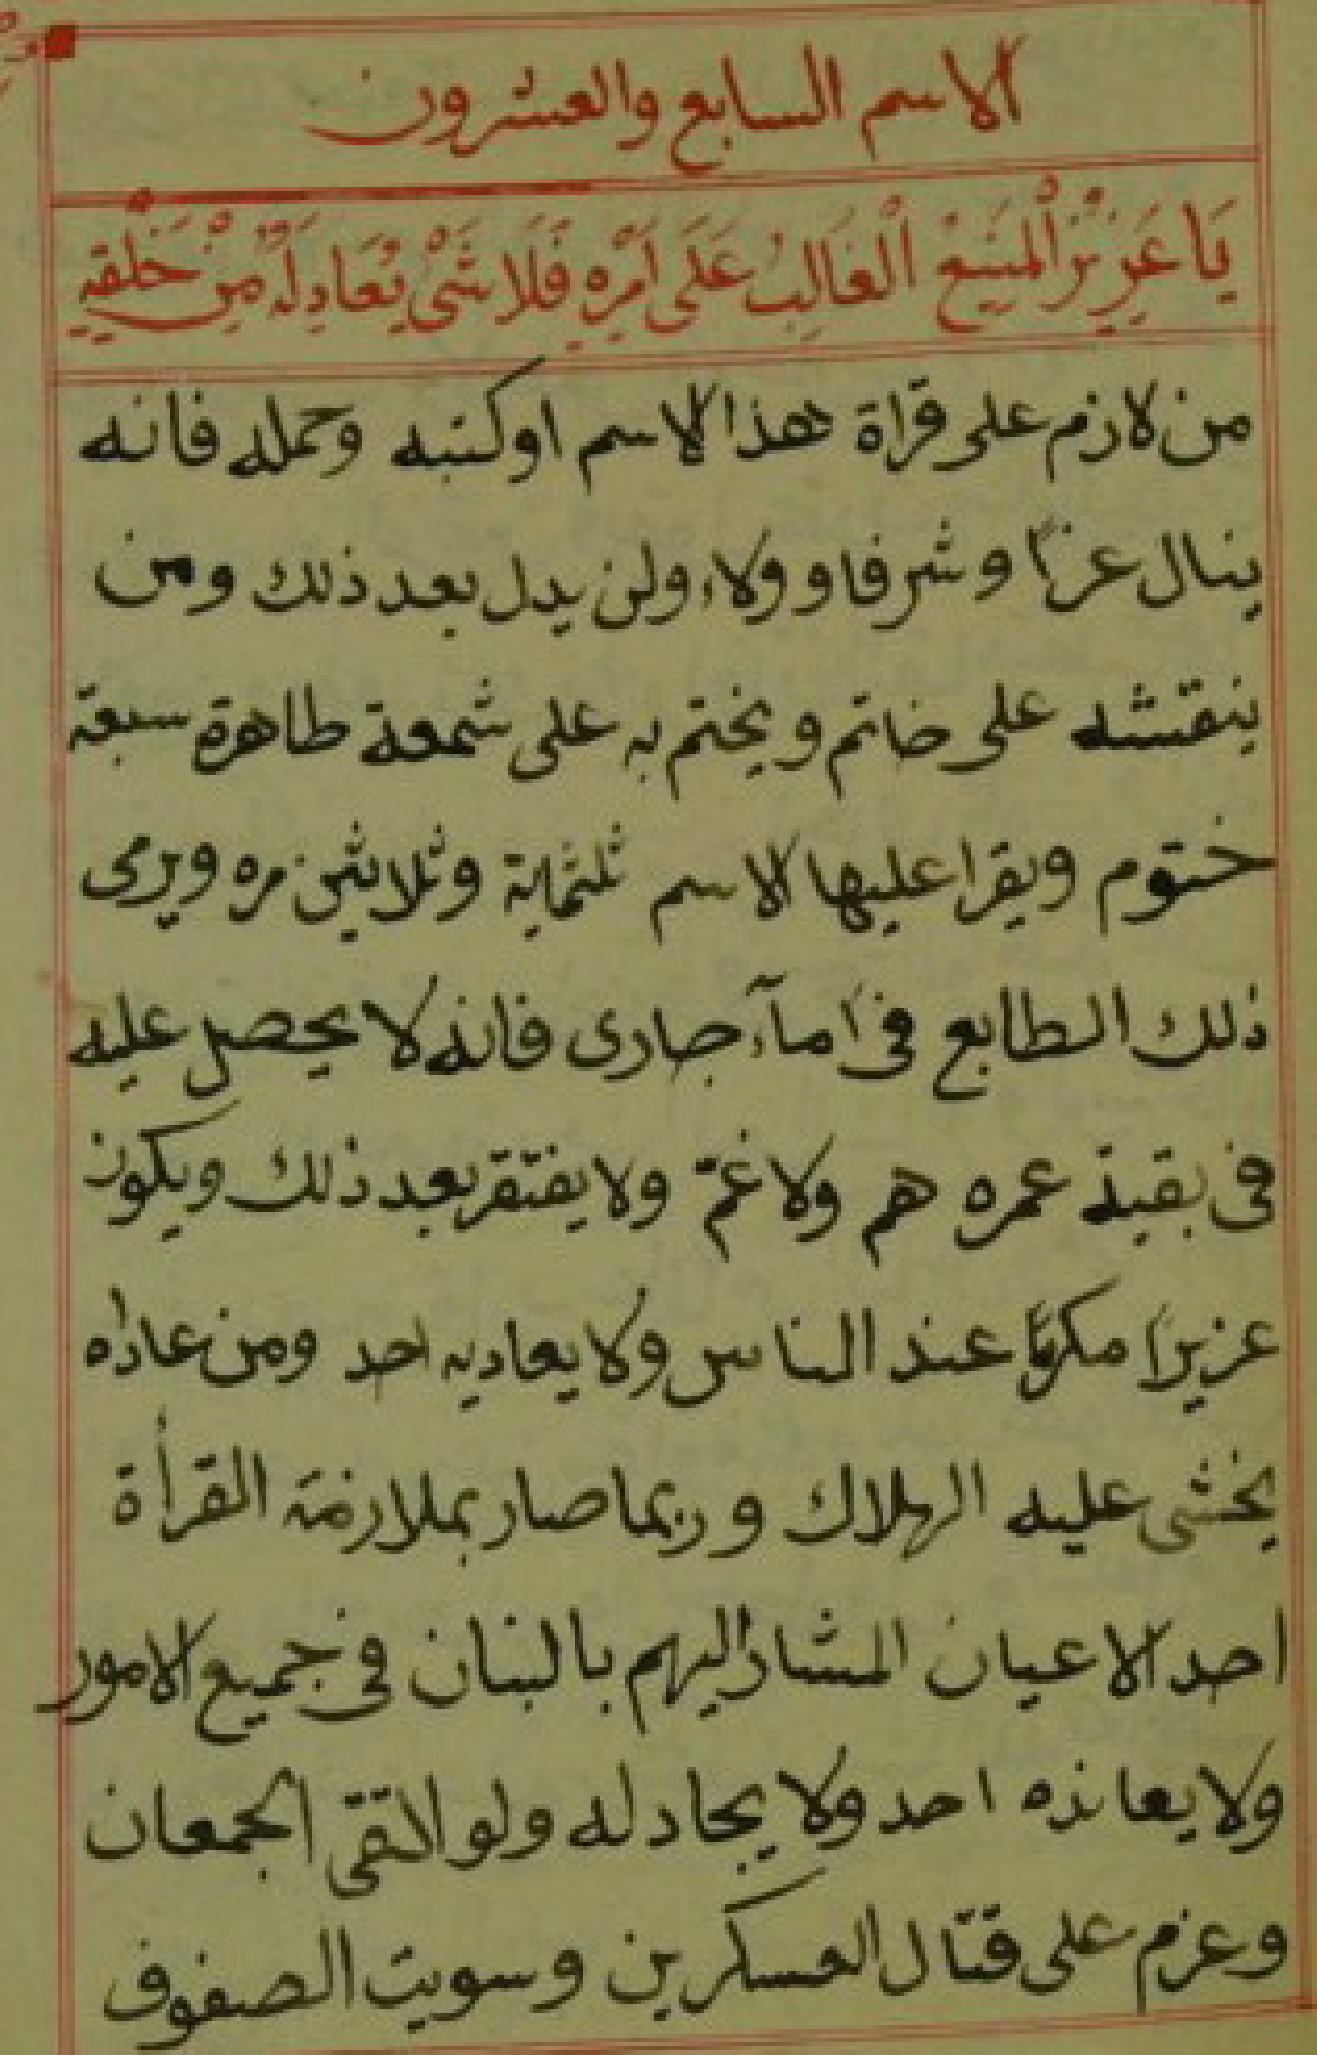 الاسم السابع والعشرون
يَا عَزِيْزُ الْمَنِيْعُ الْغَالِبُ عَلَى اَمْرِهِ فَلَا شَىْ يُعَادِلُهُ مِنْ خَلْقِهِ
من لازم على قراة هذا الاسم او كتبه وحمله فانه
ينال عزًا وشرفا وولاء ولن يدل بعد ذلك ومن
ينقشه على خاتم ويختم به على شمعة طاهرة سبعة
ختوم ويقرا عليها الاسم ثلثماية وثلاثين مره ويرمى
ذلك الطابع فى مآء جارى فانه لا يحصل عليه
فى بقية عمره هم ولا غمّ ولا يفتقر بعد ذلك ويكون
عزيزًا مكرمًا عند الناس ولا يعاديه احد ومن عاداه
يخشى عليه الهلاك وربما صار بملازمة القرأة
احد الاعيان المشار اليهم بالبنان فى جميع الامور
ولا يعانده احد ولا يجادله ولو التقى الجمعان
وعزم على قتال العسكرين وسويت الصفوف